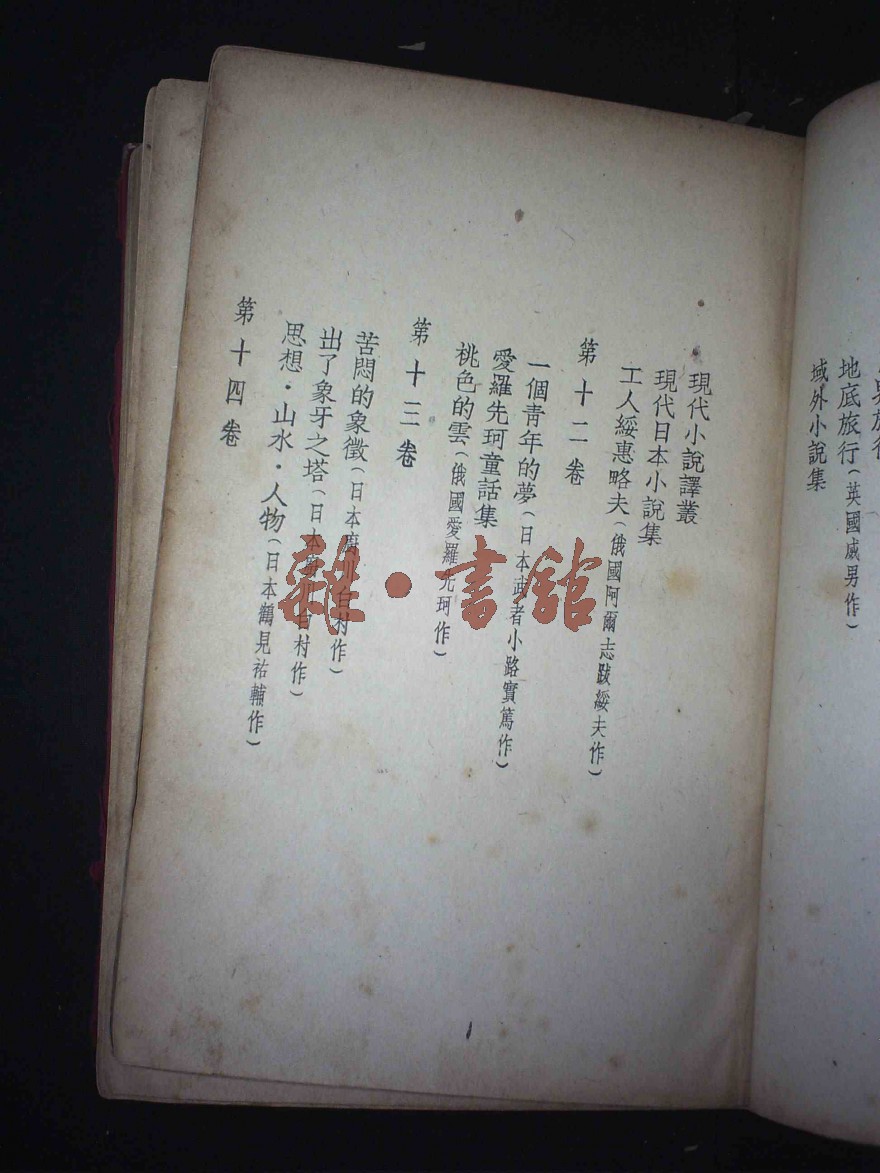 地底旅行(英國威男作)
域外小說集
現代小說譯叢
現代日本小說集
工人綏惠略夫(俄國阿爾志跋綏夫作)
第十二卷
一個靑年的夢(日本武者小路實篤作)
愛羅先珂童話集
桃色的雲(俄國愛羅先珂作)
第十三卷
苦悶的象徵(日本廚川白村作)
出了象牙之塔(日本廚川白村作)
思想・山水・人物(日本鶴見祐輔作)
第十四卷
雜・書館